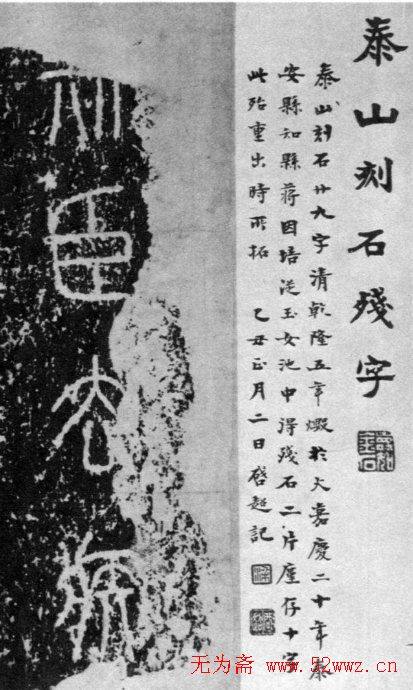 泰山刻石殘字
泰山刻石廿九字清乾隆五年燬於火嘉慶二十年泰
安縣知縣蔣因培從玉女池中得殘石二片廑存十字
此殆重出時所拓 乙丑正月二日啓超記
臣去疾
无为斋 www.52wwz.cn